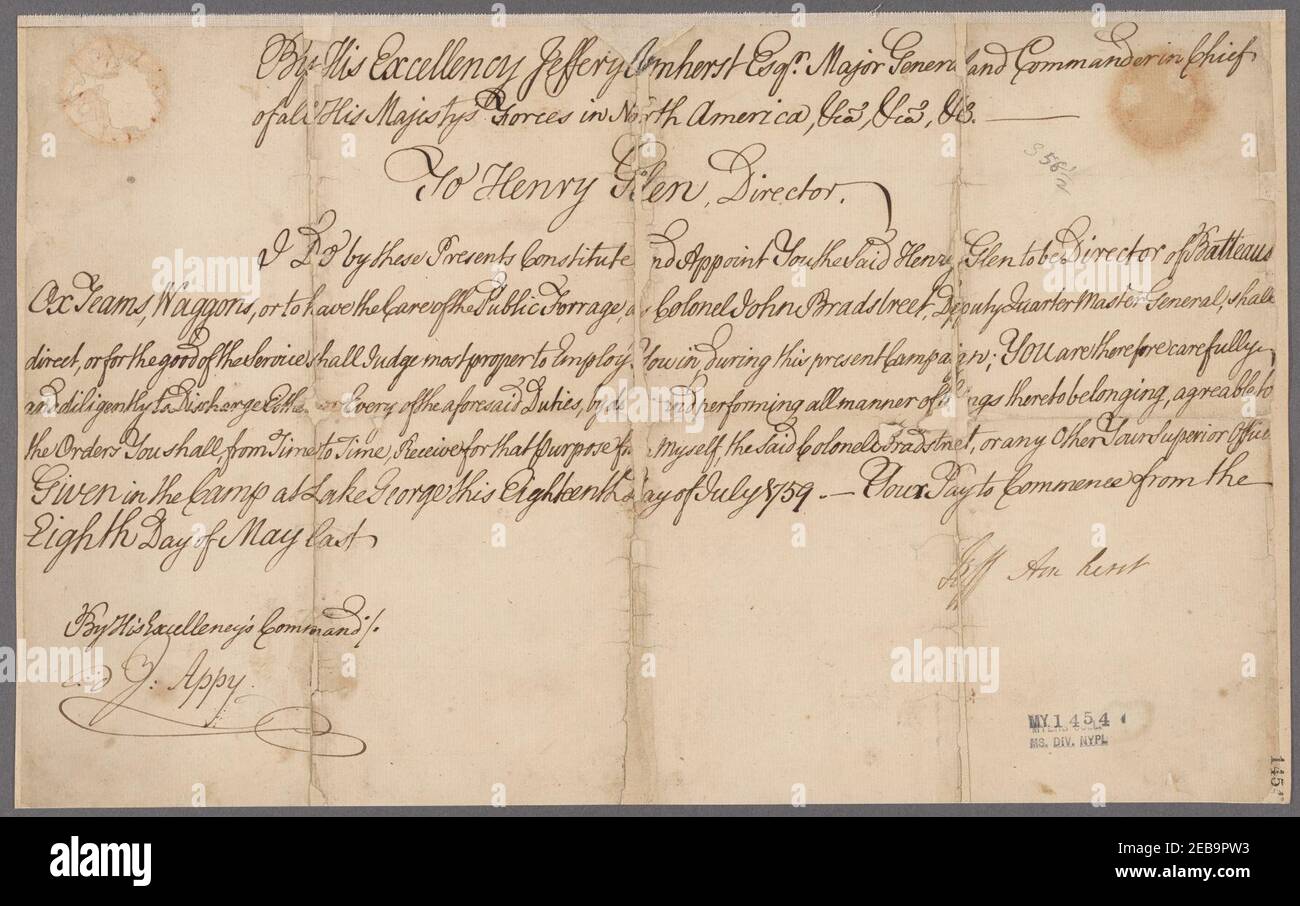 By His Excellency Jeffery Amherst Esqr. Major General and Commander in Chief
of all His Majestys Forces in North America, &ca, &ca, &c.
S 56 1/2
To Henry Glen, Director.
I Do by these Presents Constitute and Appoint You the Said Henry Glen to be Director of Batteaus
Ox Teams, Waggons, or to have the Care of the Public Forrage, as Colonel John Bradstreet, Deputy Quarter Master General, shall
direct, or for the good of the Service shall Judge most proper to Employ You in, during this present Campaign; You are therefore carefully
and diligently to Discharge Every of the aforesaid Duties, by and performing all manner of things thereto belonging, agreable to
the Orders You shall, from Time to Time, Receive for that Purpose from Myself, the Said Colonel Bradstreet, or any Other Your Superior Office
Given in the Camp at Lake George this Eighteenth Day of July 1759. — Your Pay to Commence from the
Eighth Day of May last
Jeff Amherst
By His Excellency's Command /.
J: Appy.
MY 1454
MYERS COLL.
MS. DIV. NYPL
145
a
alamy
alamy
Image ID: 2EB9PW3
www.alamy.com